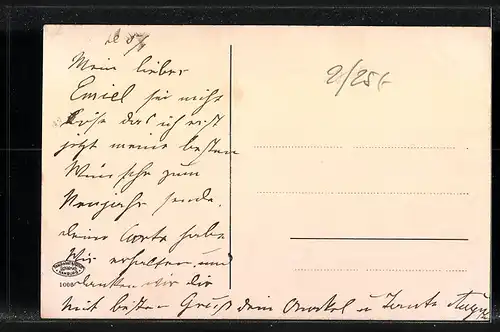 Mein lieber
Emiel sei nicht
böse das ich erst
jetzt meine besten
Wünsche zum
Neujahr sende.
deine Carte habe
Wir erhalten und
danken wir dir
mit besten Gruss dein Onkel u Tante
2/25
1000